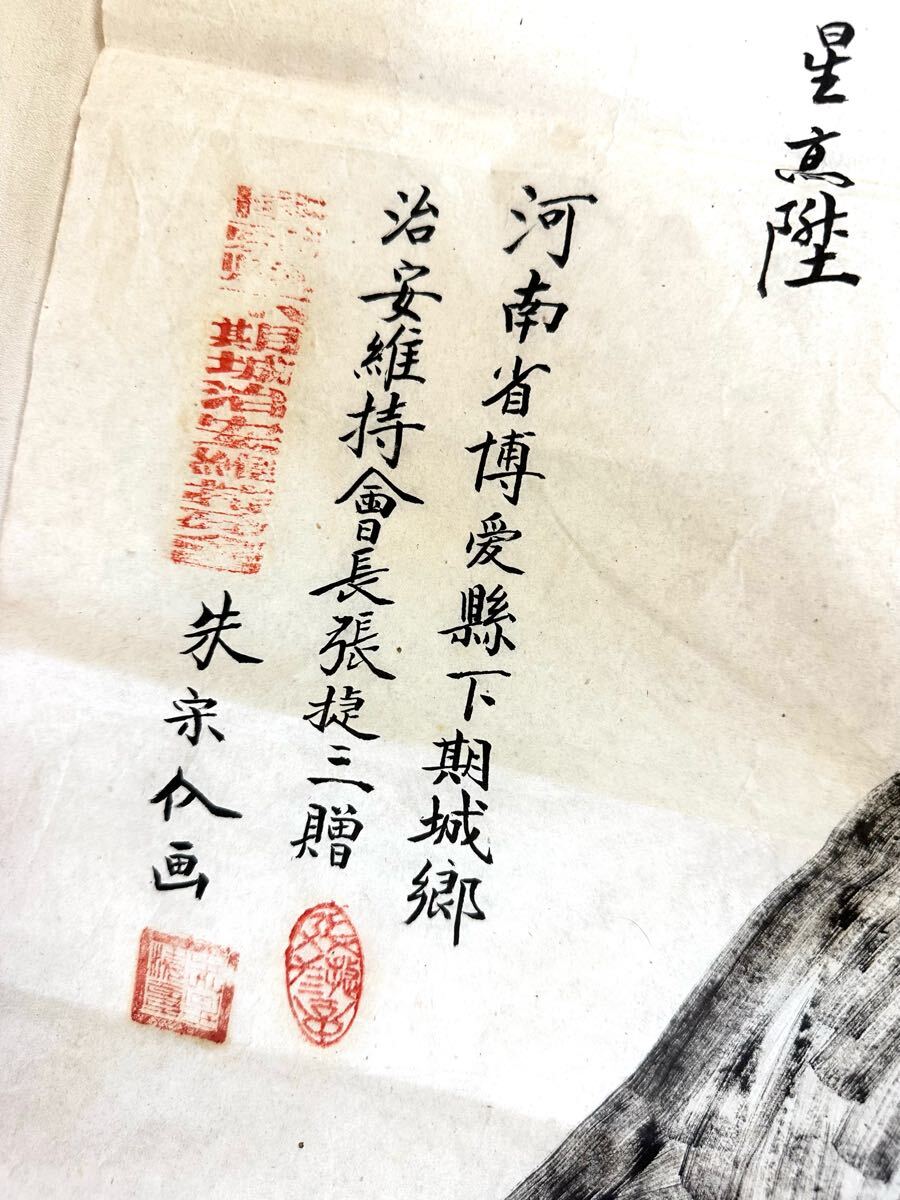 星高陞
河南省博愛縣下期城鄉
治安維持會長張捷三贈
期城治安維持會
朱宗仏画